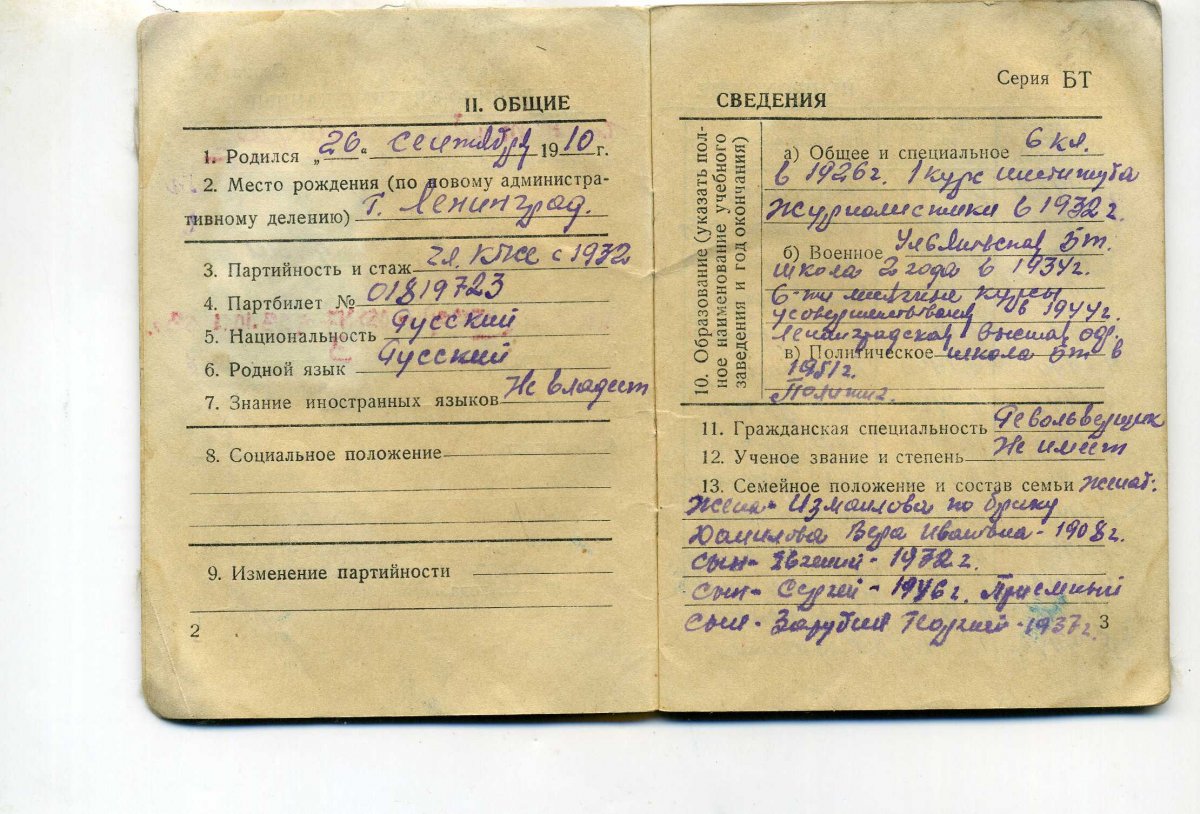 II. ОБЩИЕ
1. Родился „26“ сентября 1910 г.
2. Место рождения (по новому администра-
тивному делению) г. Ленинград.
3. Партийность и стаж чл. КПСС с 1932
4. Партбилет № 01819723
5. Национальность Русский
6. Родной язык Русский
7. Знание иностранных языков Не владеет
8. Социальное положение
9. Изменение партийности
2
Серия БТ
СВЕДЕНИЯ
10. Образование (указать пол-
ное наименование учебного
заведения и год окончания)
а) Общее и специальное 6 кл.
в 1926г. 1 курс института
журналистики в 1932 г.
б) Военное Ульяновская Бт.
школа 2 года в 1934г.
6-ти месячные курсы
усовершенствования в 1944г.
Ленинградская высшая оф.
в) Политическое школа бт в
1951г.
11. Гражданская специальность Револьверщик
12. Ученое звание и степень Не имеет
13. Семейное положение и состав семьи женат:
жена - Измайлова по браку
Данилова Вера Ивановна - 1908г.
сын - Евгений - 1932 г.
сын - Сергей - 1946г. Приемный
сын - Зарубин Георгий - 1937г.
3